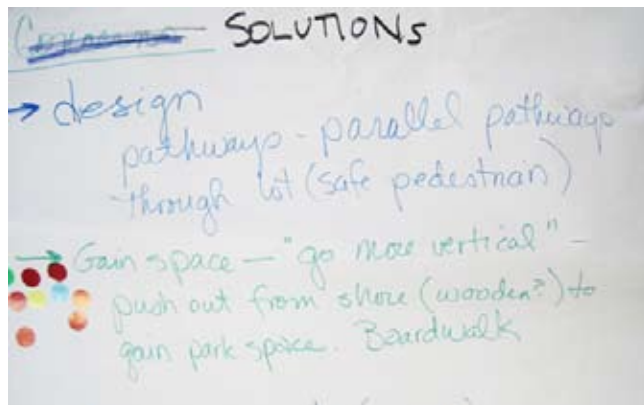 SOLUTIONS
→ design
pathways - parallel pathways
through lot (safe pedestrian)
→ Gain space — "go more vertical" -
push out from shore (wooden?) to
gain park space. Boardwalk